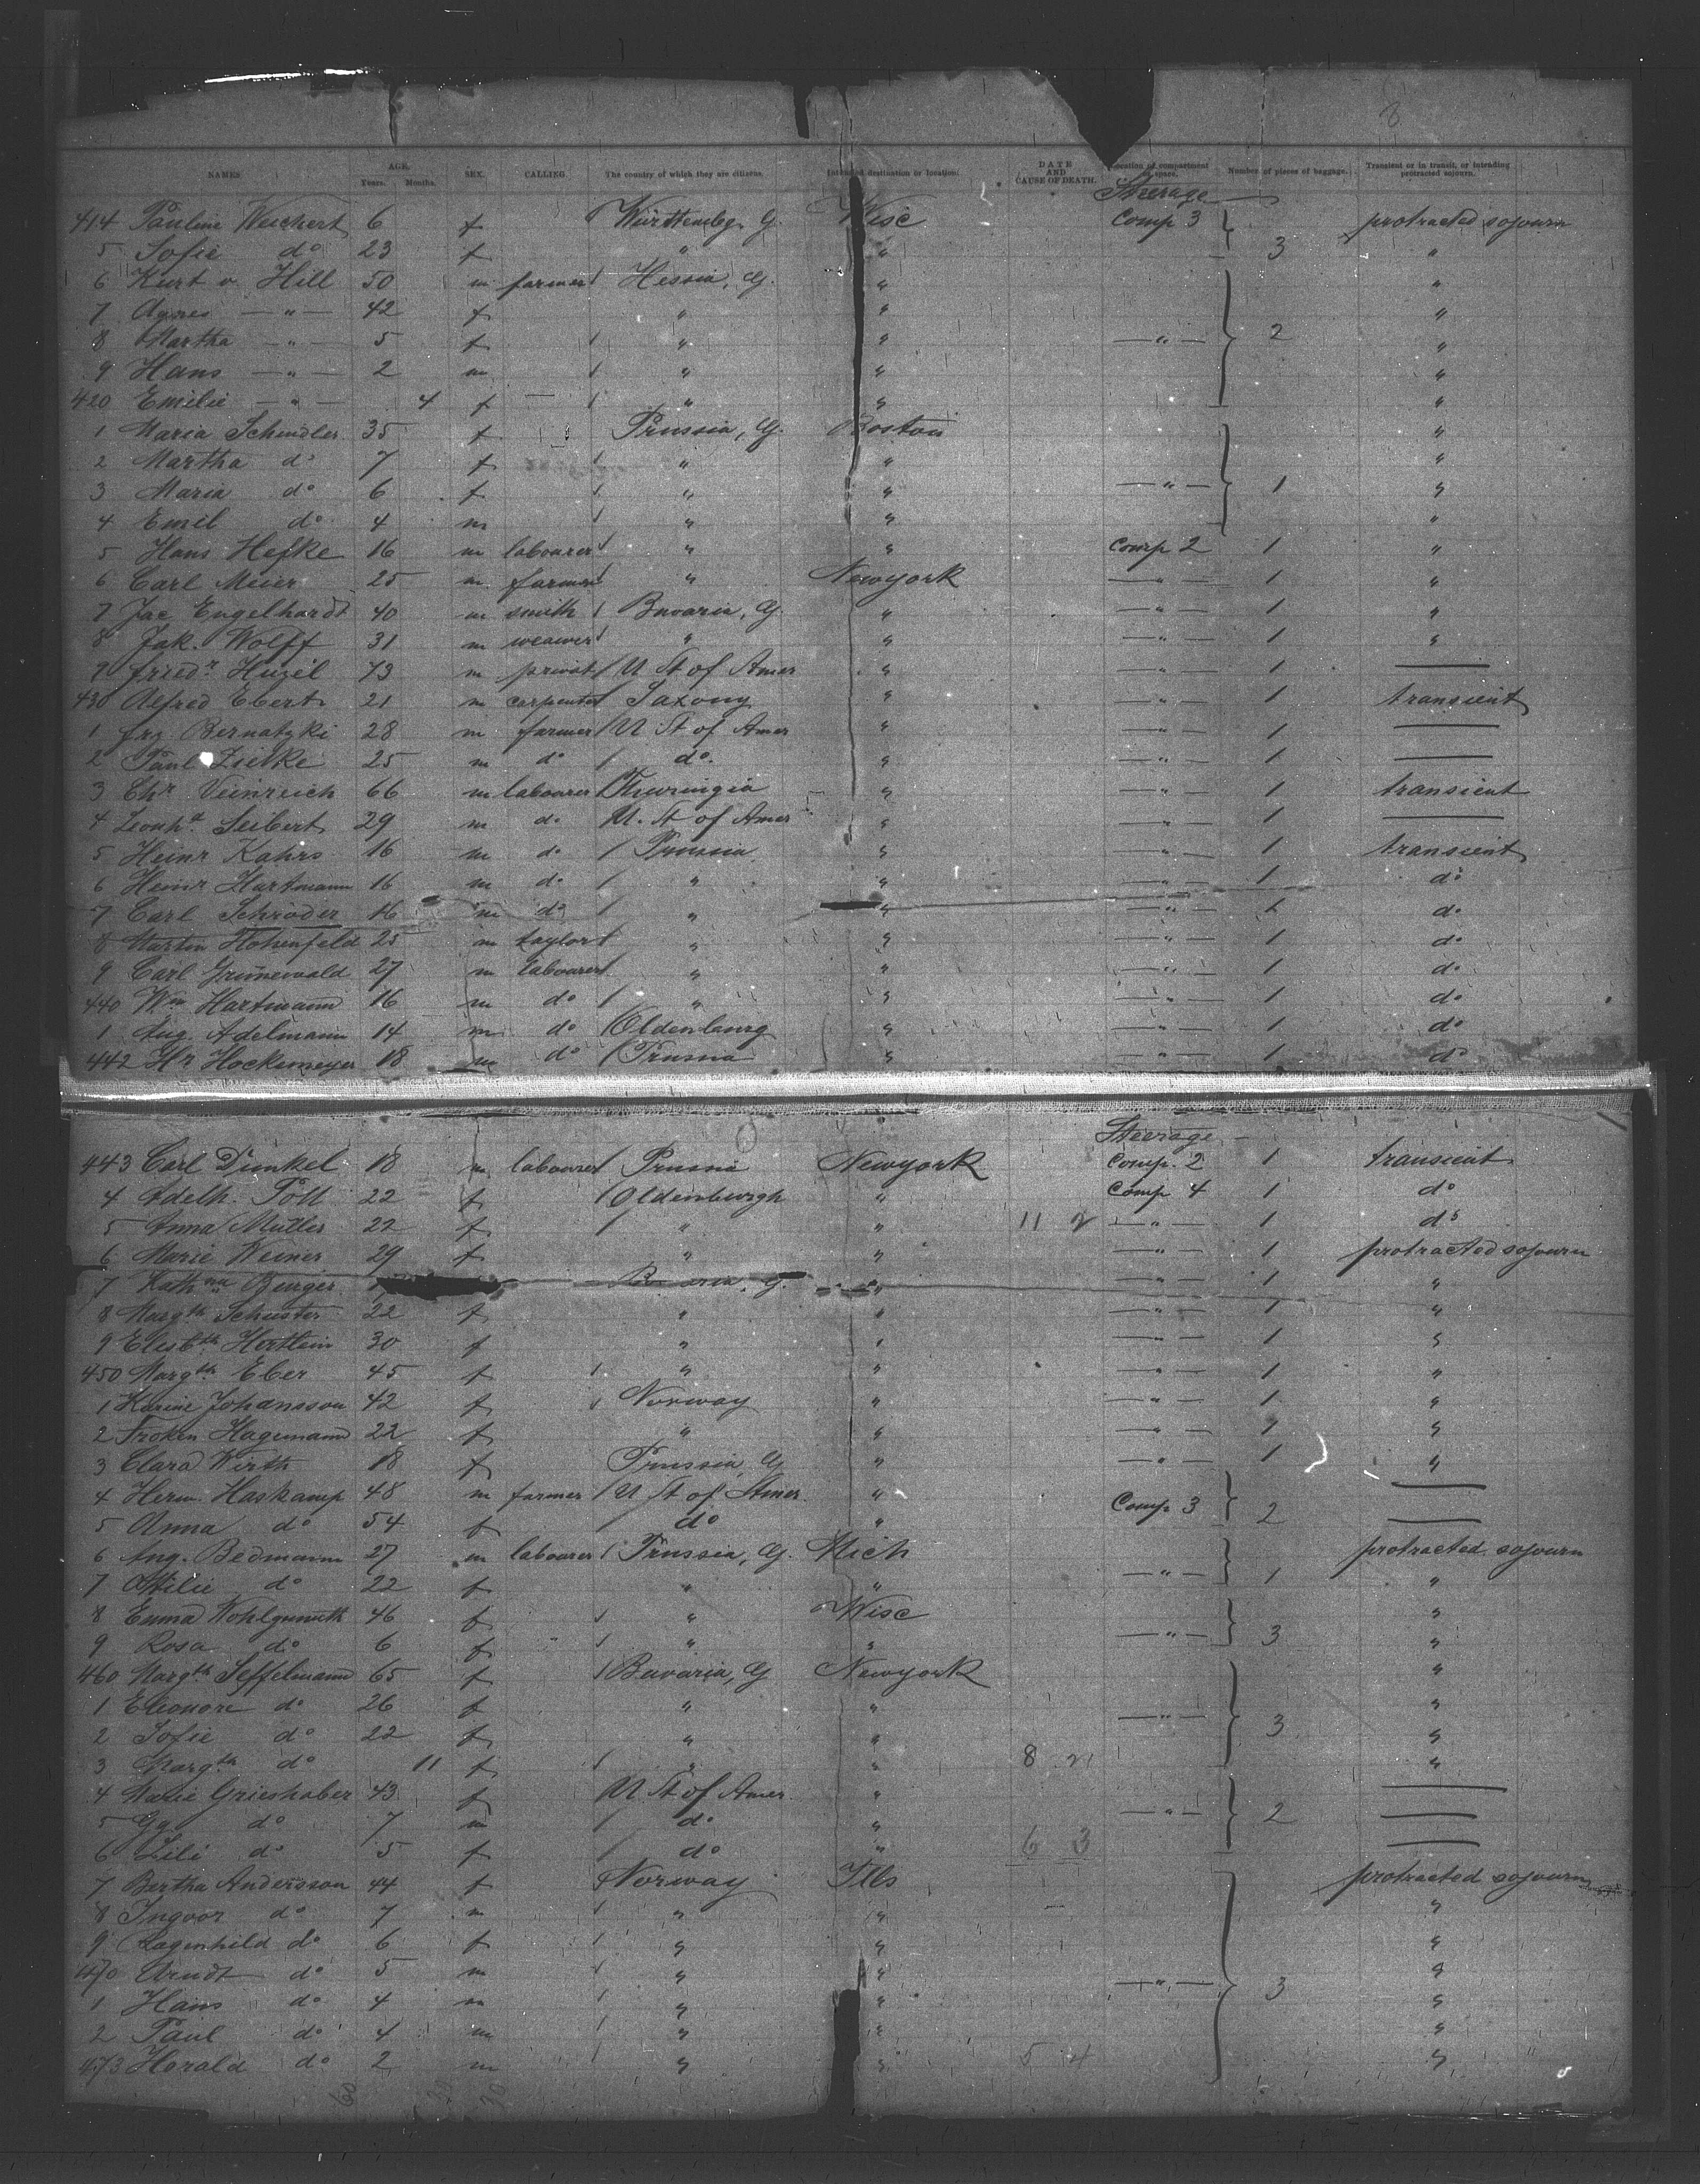 8
NAMES. AGE. Years. Months. SEX. CALLING. The country of which they are citizens. Intended destination or location. DATE AND CAUSE OF DEATH. Location of compartment or space. Number of pieces of baggage. Transient or in transit, or intending protracted sojourn.
Steerage
414 Pauline Weichert 6 f Württembg. G. Wisc Comp 3 protracted sojourn
5 Sofie do 23 f " " 3 "
6 Kurt v. Hill 50 m farmer Hessia, G. " "
7 Agnes — " — 42 f " " "
8 Martha — " — 5 f " " — " — 2 "
9 Hans — " — 2 m " " "
420 Emilie — " — 4 f " " "
1 Maria Schindler 35 f Prussia, G. Boston "
2 Martha do 7 f " " "
3 Maria do 6 f " " — " — 1 "
4 Emil do 4 m " " "
5 Hans Hefke 16 m labourer " " Comp 2 1 "
6 Carl Meier 25 m farmer " Newyork — " — 1 "
7 Jac Engelhardt 40 m smith Bavaria, G. " — " — 1 "
8 Jak. Wolff 31 m weawer " " — " — 1 "
9 Friedr. Huzel 73 m privat U St of Amer " — " — 1 —
430 Alfred Ebert 21 m carpenter Saxony " — " — 1 transient
1 Frz. Bernatzki 28 m farmer U. St of Amer " — " — 1 —
2 Paul Zielke 25 m do do. " — " — 1 —
3 Chr Veinreich 66 m labourer Thuringia " — " — 1 transient
4 Leonhd. Seibert 29 m do U. St of Amer " — " — 1 —
5 Heinr Kahrs 16 m do Prussia " — " — 1 transient
6 Heinr Hartmann 16 m do " " — " — 1 do
7 Carl Schröder 16 m do " " — " — 1 do
8 Martin Hohenfeld 25 m taylor " " — " — 1 do
9 Carl Grünewald 27 m labourer " " — " — 1 do
440 Wm Hartmann 16 m do " " — " — 1 do
1 Aug. Adelmann 14 m do Oldenburg " — " — 1 do
442 Hr Hockemeyer 18 m do Prussia " — " — 1 do
Steerage
443 Carl Dunkel 18 m labourer Prussia Newyork Comp. 2 1 transient
4 Adelh. Poll 22 f Oldenburgh " Comp 4 1 do
5 Anna Müller 22 f " " 11 2 — " — 1 do
6 Marie Weiner 29 f " " — " — 1 protracted sojourn
7 Kathna Burger G. " — " — 1 "
8 Margth Schuster 22 f " " — " — 1 "
9 Elisbth Hertlein 30 f " " — " — 1 "
450 Margth Eber 45 f " " — " — 1 "
1 Karine Johansson 42 f Norway " — " — 1 "
2 Froken Hagemann 22 f " " — " — 1 "
3 Clara Wirth 18 f Prussia, G " — " — 1 "
4 Herm. Haskamp 48 m farmer U St of Amer. " Comp. 3 —
5 Anna do 54 f do " 2 —
6 Aug. Bedmann 27 m labourer Prussia, G. Mich protracted sojourn
7 Ottilie do 22 f " " — " — 1 "
8 Emma Wohlgemuth 46 f " Wisc "
9 Rosa do 6 f " " — " — 3 "
460 Margth Seffelmann 65 f Bavaria, G Newyork "
1 Eleonore do 26 f " " — " — "
2 Sofie do 22 f " " 3 "
3 Margth do 11 f " " 8 21 "
4 Marie Grieshaber 43 f U. St of Amer. " —
5 Gg do 7 m do " — " — 2 —
6 Lili do 5 f do " 6 3 —
7 Bertha Andersson 44 f Norway Ills protracted sojourn
8 Ingvor do 7 m " " "
9 Ragenhild do 6 f " " "
470 Arndt do 5 m " " — " — 3 "
1 Hans do 4 m " " "
2 Paul do 4 m " " "
473 Harald do 2 m " " 5 4 "